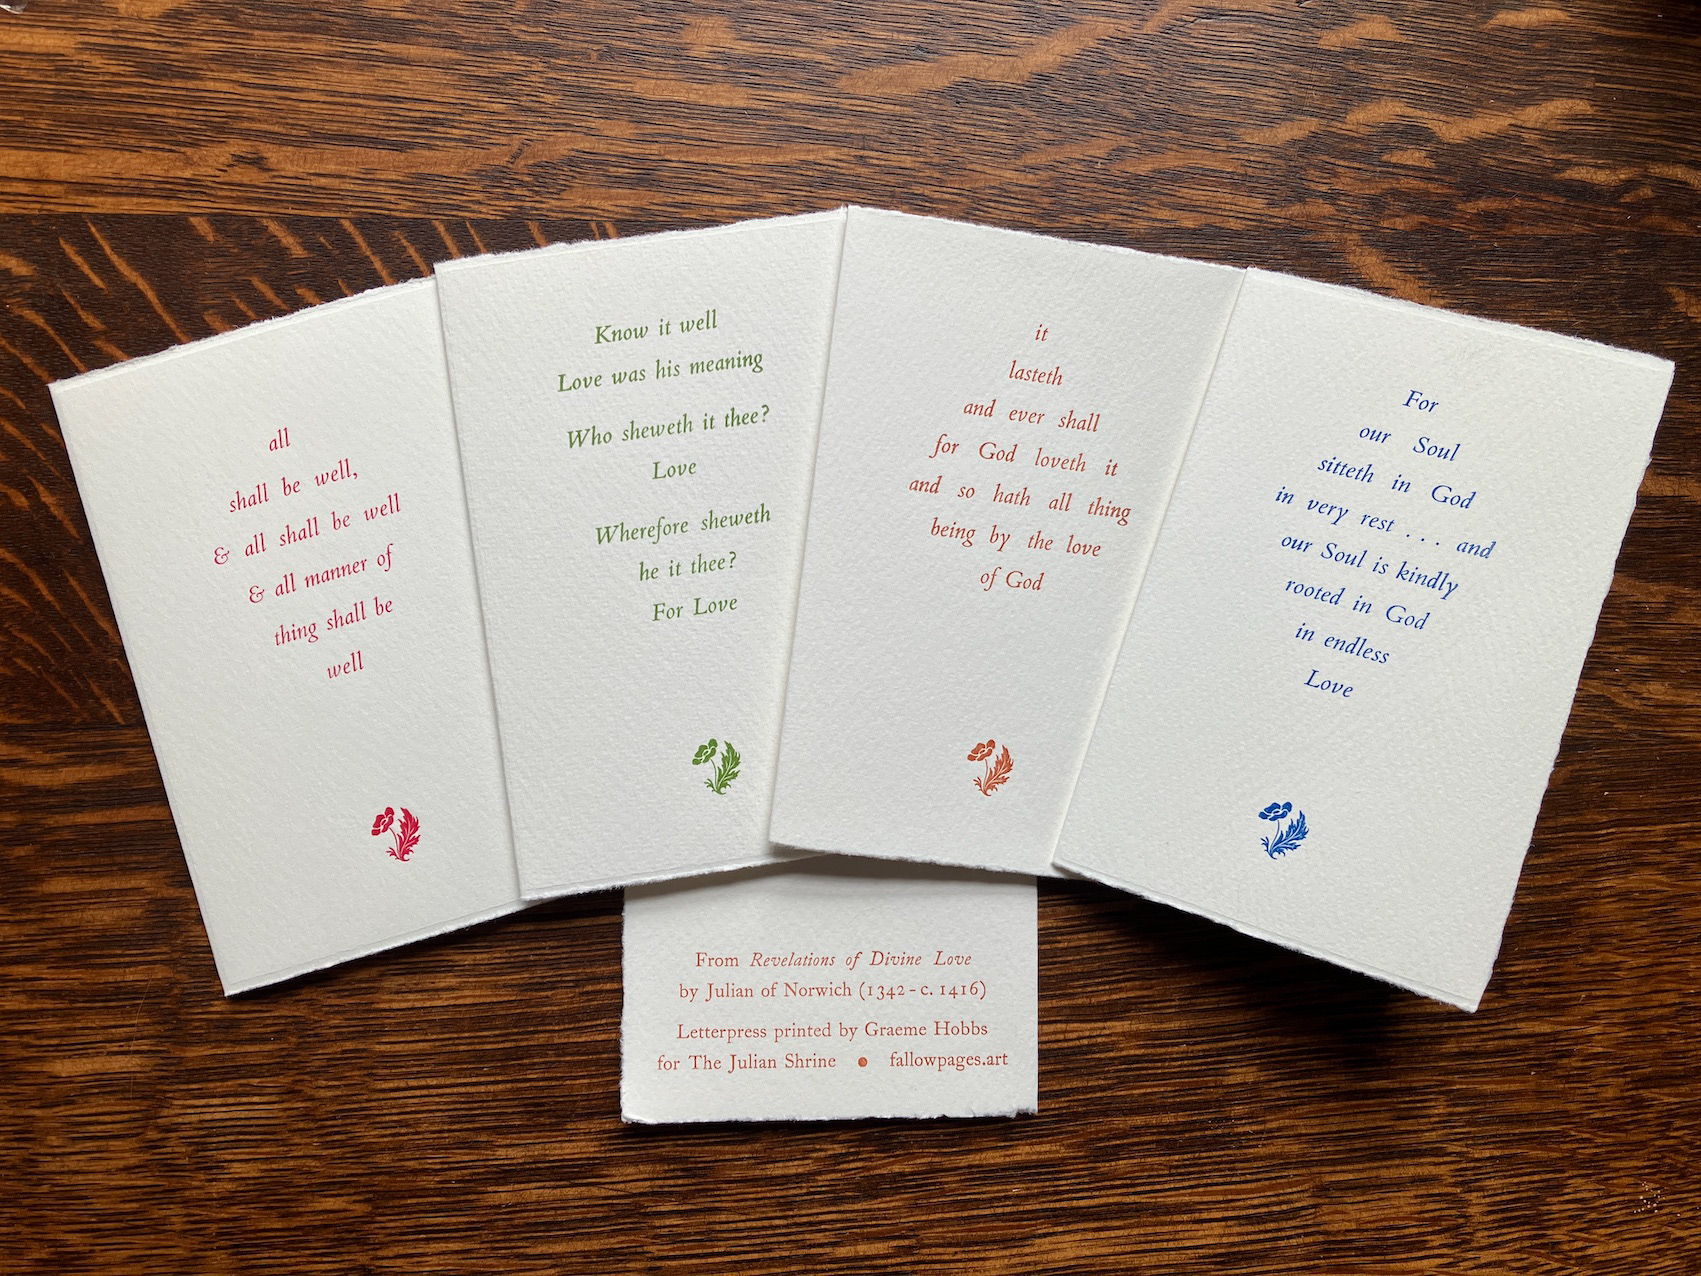 all
shall be well,
& all shall be well
& all manner of
thing shall be
well
Know it well
Love was his meaning
Who sheweth it thee?
Love
Wherefore sheweth
he it thee?
For Love
it
lasteth
and ever shall
for God loveth it
and so hath all thing
being by the love
of God
For
our Soul
sitteth in God
in very rest . . . and
our Soul is kindly
rooted in God
in endless
Love
From Revelations of Divine Love
by Julian of Norwich (1342 - c. 1416)
Letterpress printed by Graeme Hobbs
for The Julian Shrine • fallowpages.art